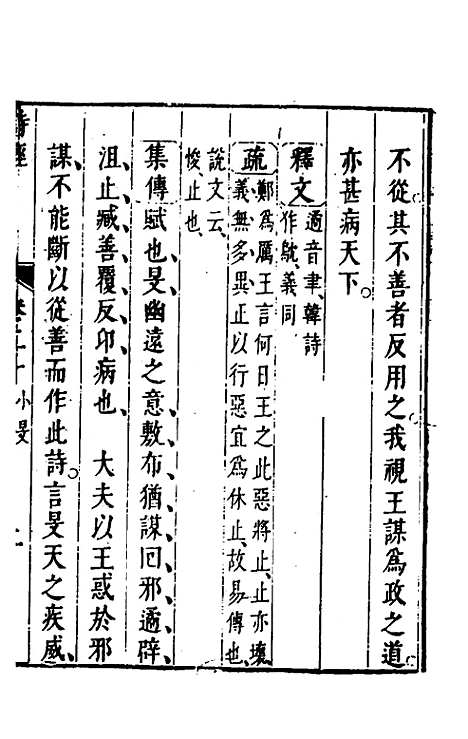 不從其不善者反用之我視王謀爲政之道。
亦甚病天下。
釋文
遹音聿、韓詩
作䬆、義同
疏
鄭爲厲王言何日王之此惡將止、止亦壞、
義無多異正以行惡宜爲休止、故易傳也、
說文云、
悛、止也、
集傳賦也旻幽遠之意敷布猶謀囘邪遹辟、
沮止臧善覆反卭病也、大夫以王惑於邪
謀、不能斷以從善而作此詩。言旻天之疾威、
詩經
小旻